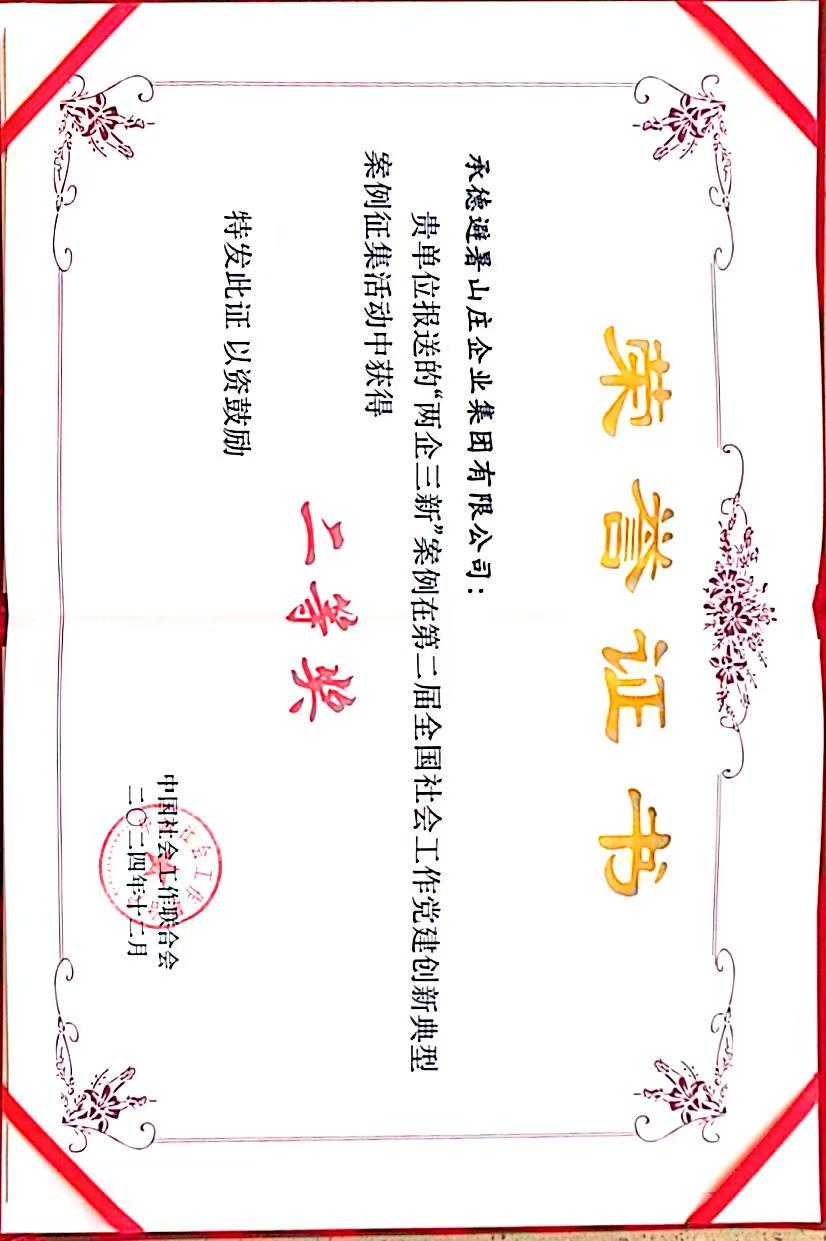 荣誉证书
承德避暑山庄企业集团有限公司：
贵单位报送的“两企三新”案例在第二届全国社会工作党建创新典型
案例征集活动中获得
二等奖
特发此证 以资鼓励
中国社会工作联合会
二〇二四年十二月